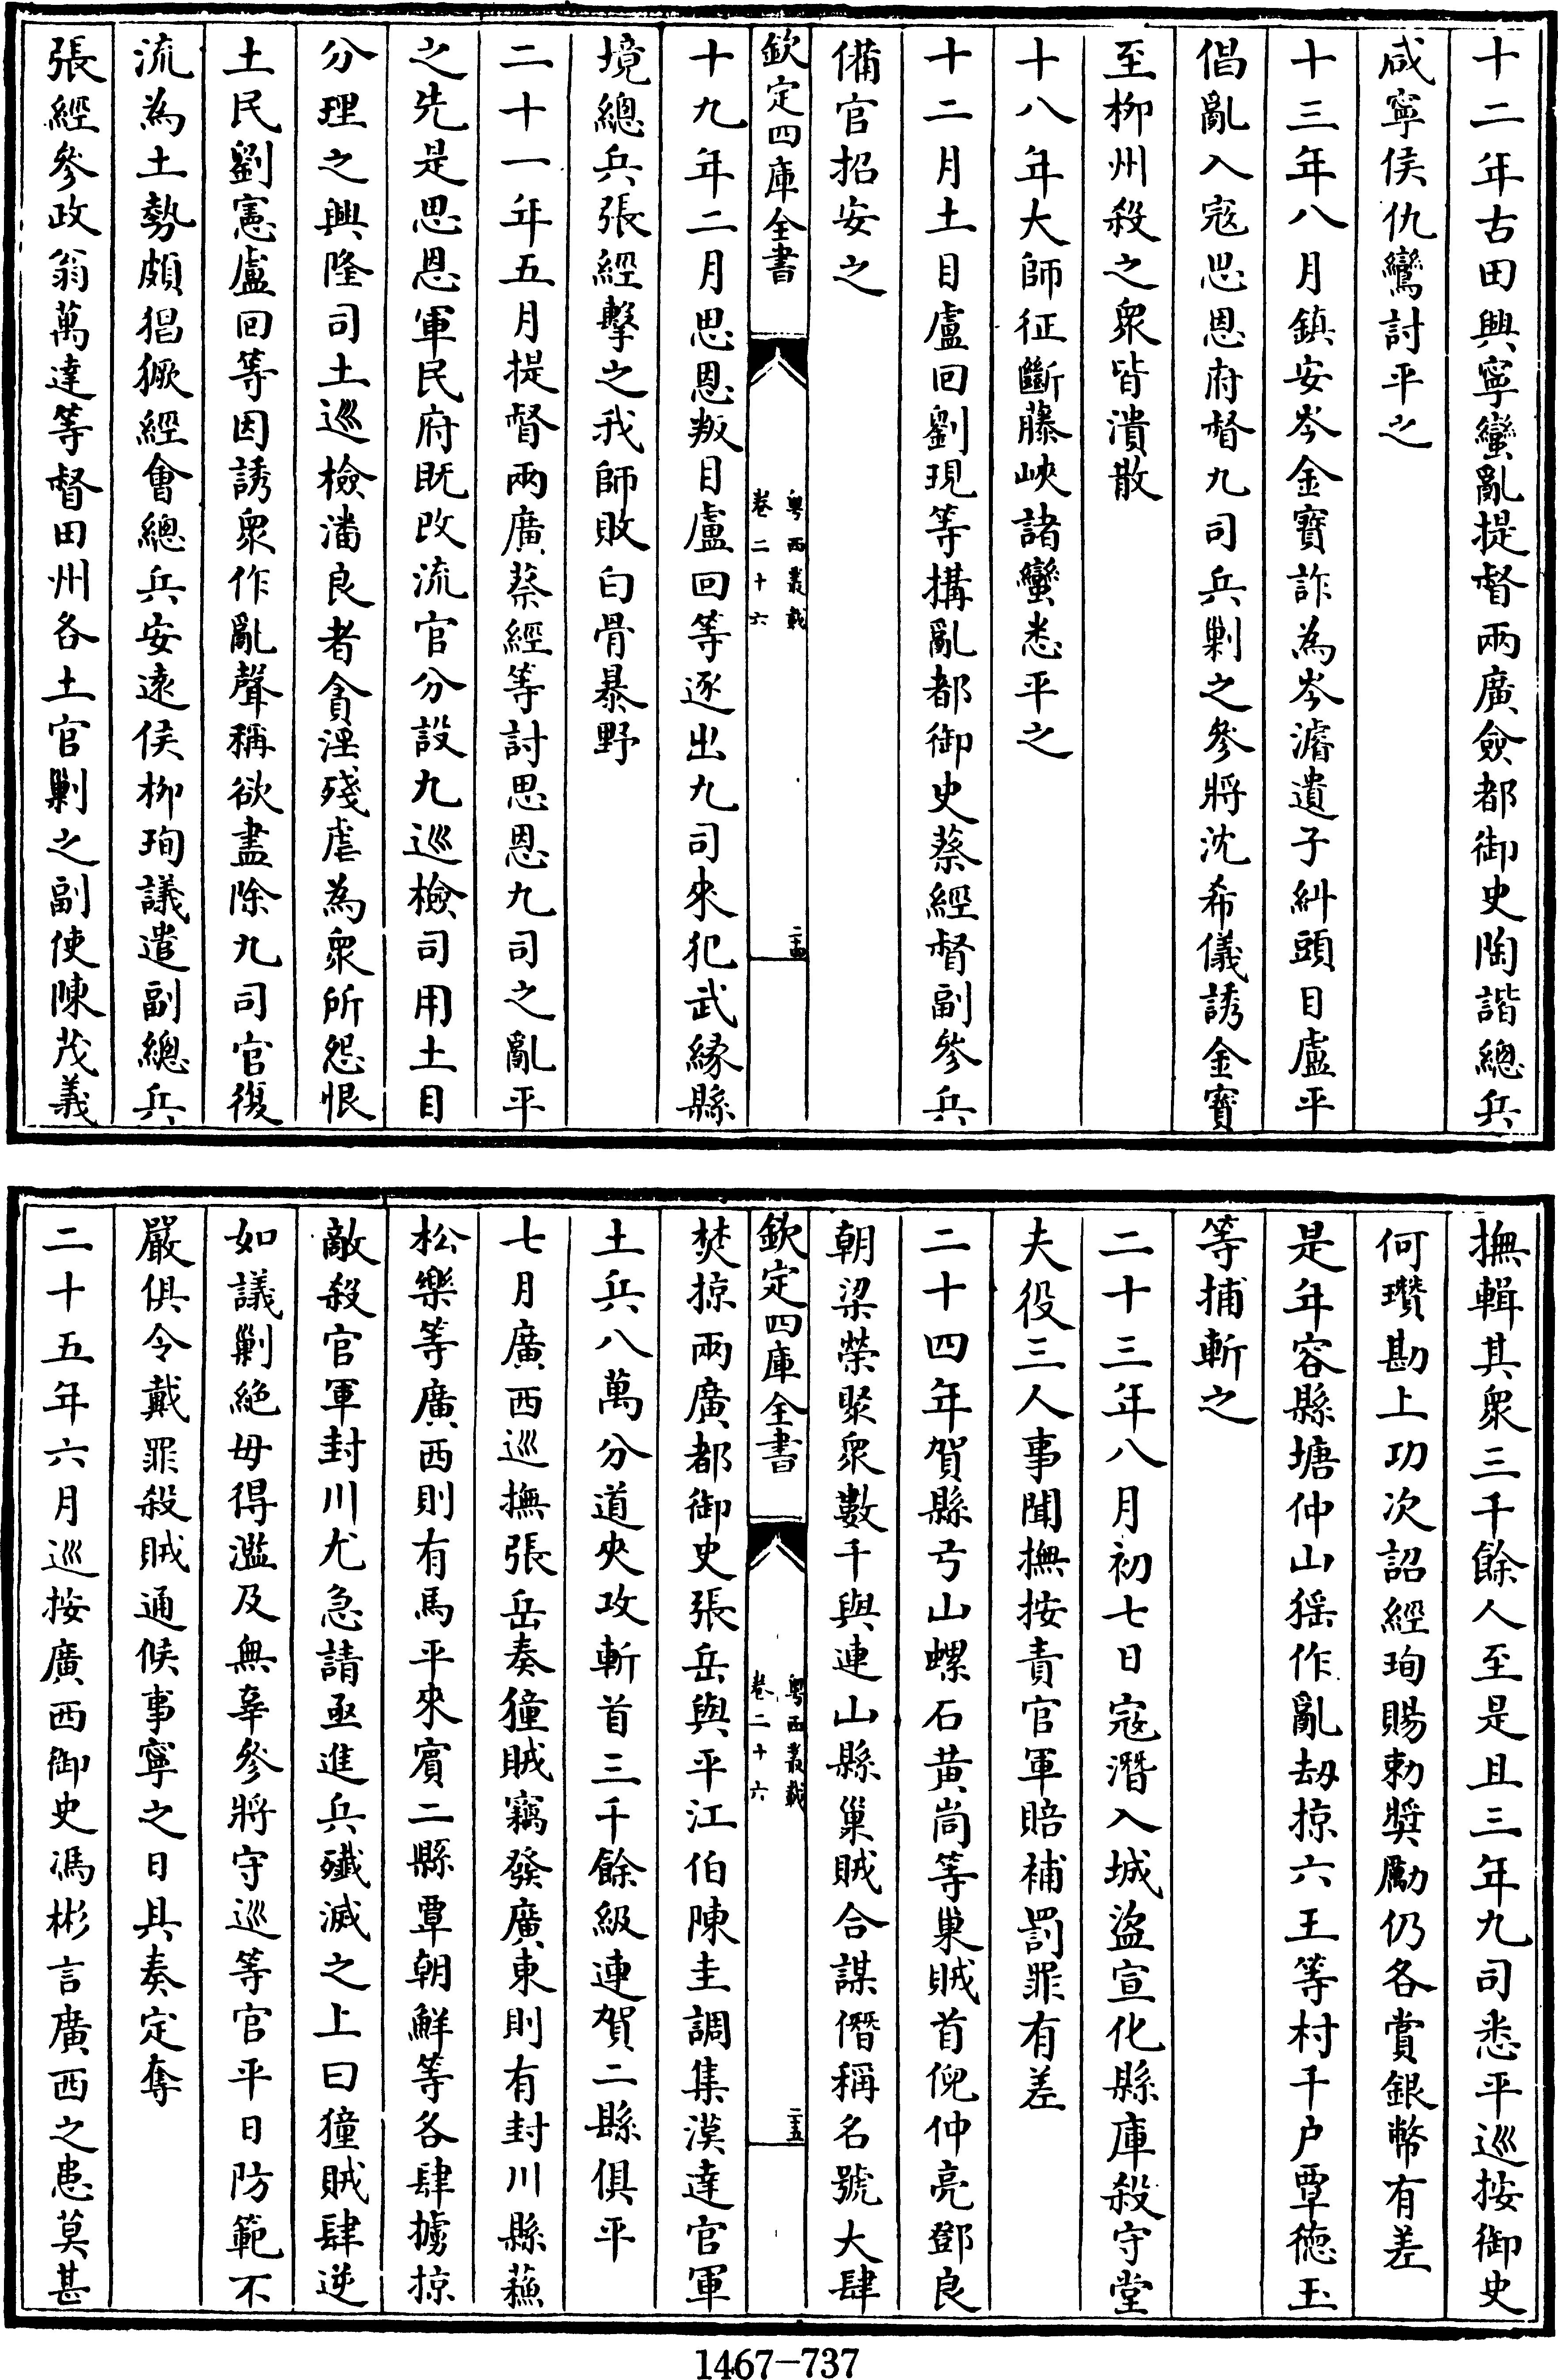 十二年古田興寧蠻亂提督兩廣僉都御史陶諧總兵
咸寧侯仇鸞討平之
十三年八月鎮安岑金寶詐為岑濬遺子糾頭目盧平
倡亂入寇思恩府督九司兵剿之參將沈希儀誘金寶
至柳州殺之衆皆潰散
十八年大師征斷藤峽諸蠻悉平之
十二月土目盧回劉現等搆亂都御史蔡經督副參兵
備官招安之
欽定四庫全書
粤西叢載
卷二十六
十九年二月思恩叛目盧回等逐出九司來犯武緣縣
境總兵張經擊之我師敗白骨暴野
二十一年五月提督兩廣蔡經等討思恩九司之亂平
之先是思恩軍民府既改流官分設九巡檢司用土目
分理之興隆司土巡檢潘良者貪淫殘虐為衆所怨恨
土民劉憲盧回等因誘衆作亂聲稱欲盡除九司官復
流為土勢頗猖獗經會總兵安遠侯柳珣議遣副總兵
張經參政翁萬達等督田州各土官剿之副使陳茂義
撫輯其衆三千餘人至是且三年九司悉平巡按御史
何瓚勘上功次詔經珣賜勅奬勵仍各賞銀幣有差
是年容縣塘仲山猺作亂刼掠六王等村千户覃德玉
等捕斬之
二十三年八月初七日寇潛入城盜宣化縣庫殺守堂
夫役三人事聞撫按責官軍賠補罰罪有差
二十四年賀縣亏山螺石黄峝等巢賊首倪仲亮鄧良
朝梁榮聚衆數千與連山縣巢賊合謀僭稱名號大肆
欽定四庫全書
粤西叢載
卷二十六
焚掠兩廣都御史張岳與平江伯陳圭調集漢達官軍
土兵八萬分道夾攻斬首三千餘級連賀二縣俱平
七月廣西巡撫張岳奏獞賊竊發廣東則有封川縣蘓
松樂等廣西則有馬平來賓二縣覃朝鮮等各肆擄掠
敵殺官軍封川尤急請亟進兵殱滅之上曰獞賊肆逆
如議剿絶毋得濫及無辜參將守巡等官平日防範不
嚴俱令戴罪殺賊通候事寧之日具奏定奪
二十五年六月巡按廣西御史馮彬言廣西之患莫甚
1467-737